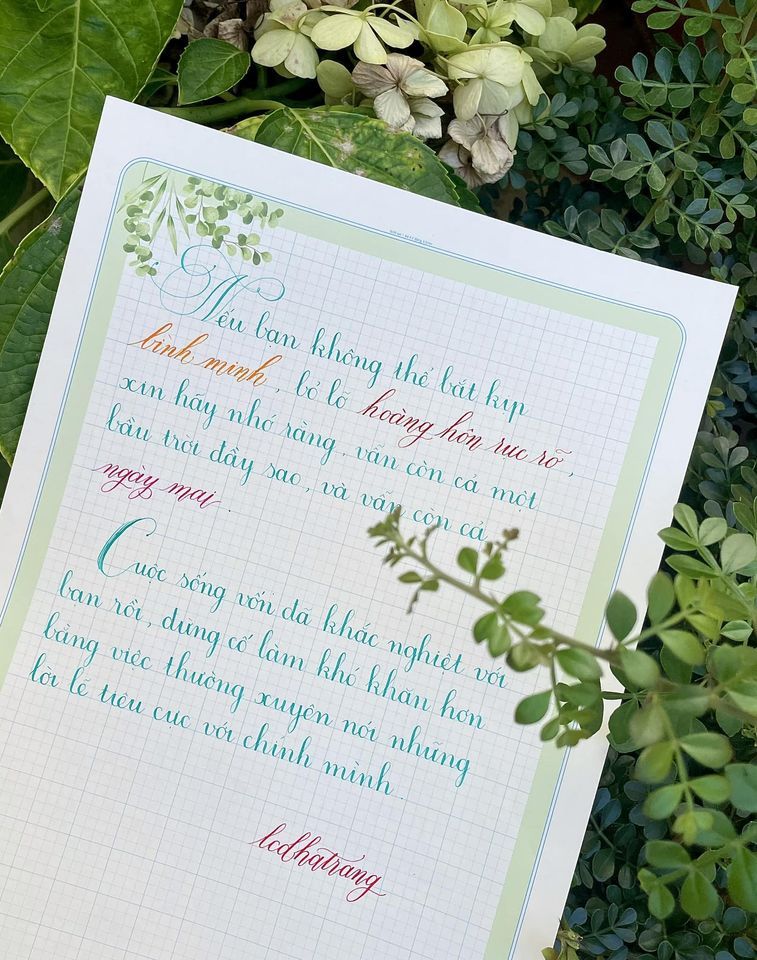 Nếu bạn không thể bắt kịp
bình minh, bỏ lỡ hoàng hôn rực rỡ,
xin hãy nhớ rằng, vẫn còn cả một
bầu trời đầy sao, và vẫn còn cả
ngày mai.
Cuộc sống vốn đã khắc nghiệt với
bạn rồi, đừng cố làm khó khăn hơn
bằng việc thường xuyên nói những
lời lẽ tiêu cực với chính mình.
lcdhatrang